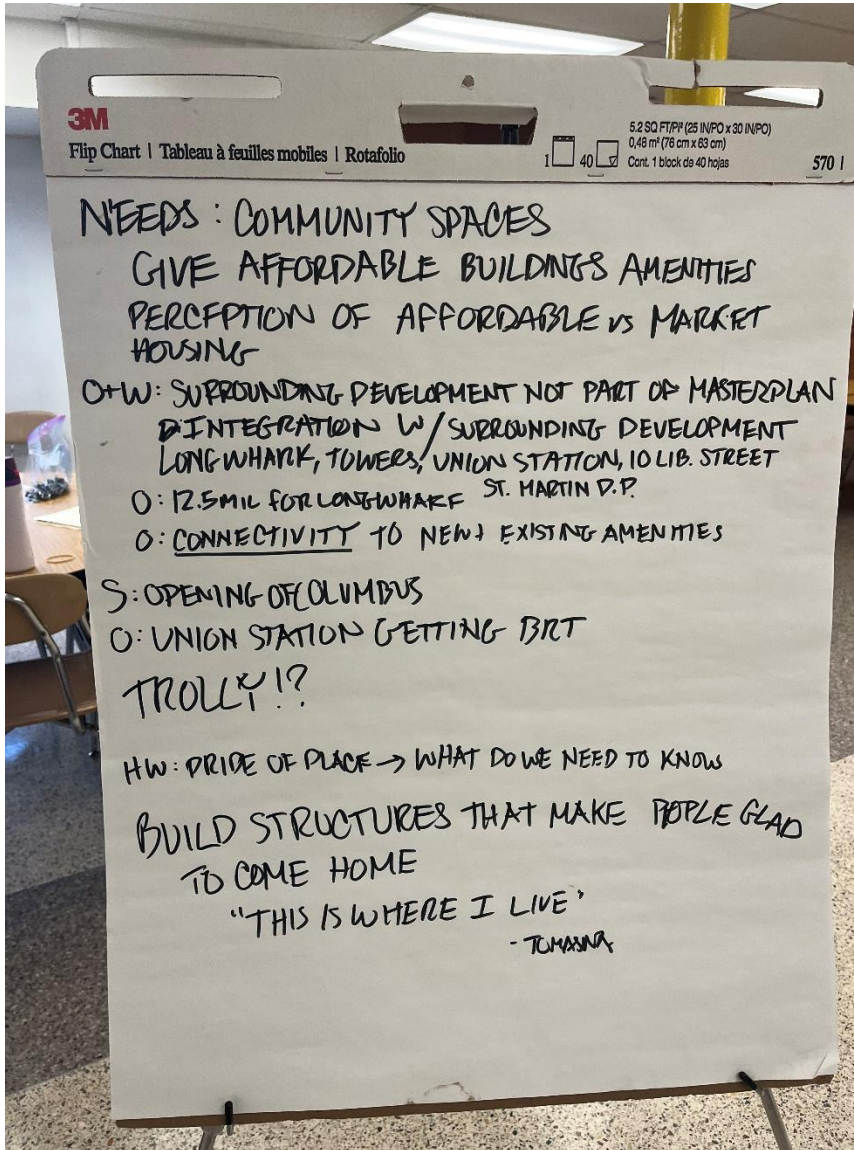 3M
Flip Chart | Tableau à feuilles mobiles | Rotafolio
1 40
5.2 SQ FT/PI² (25 IN/PO x 30 IN/PO)
0,48 m² (76 cm x 63 cm)
Cont. 1 block de 40 hojas
570
NEEDS: COMMUNITY SPACES
GIVE AFFORDABLE BUILDINGS AMENITIES
PERCEPTION OF AFFORDABLE vs MARKET
HOUSING
O+W: SURROUNDING DEVELOPMENT NOT PART OF MASTERPLAN
INTEGRATION W/ SURROUNDING DEVELOPMENT
LONG WHARK, TOWERS, UNION STATION, 10 LIB. STREET
ST. MARTIN D.P.
O: 12.5MIL FOR LONGWHARF
O: CONNECTIVITY TO NEW+ EXISTING AMENITIES
S: OPENING OF COLUMBUS
O: UNION STATION GETTING BRT
TROLLY!?
HW: PRIDE OF PLACE → WHAT DO WE NEED TO KNOW
BUILD STRUCTURES THAT MAKE PEOPLE GLAD
TO COME HOME
"THIS IS WHERE I LIVE"
- TOMASINA